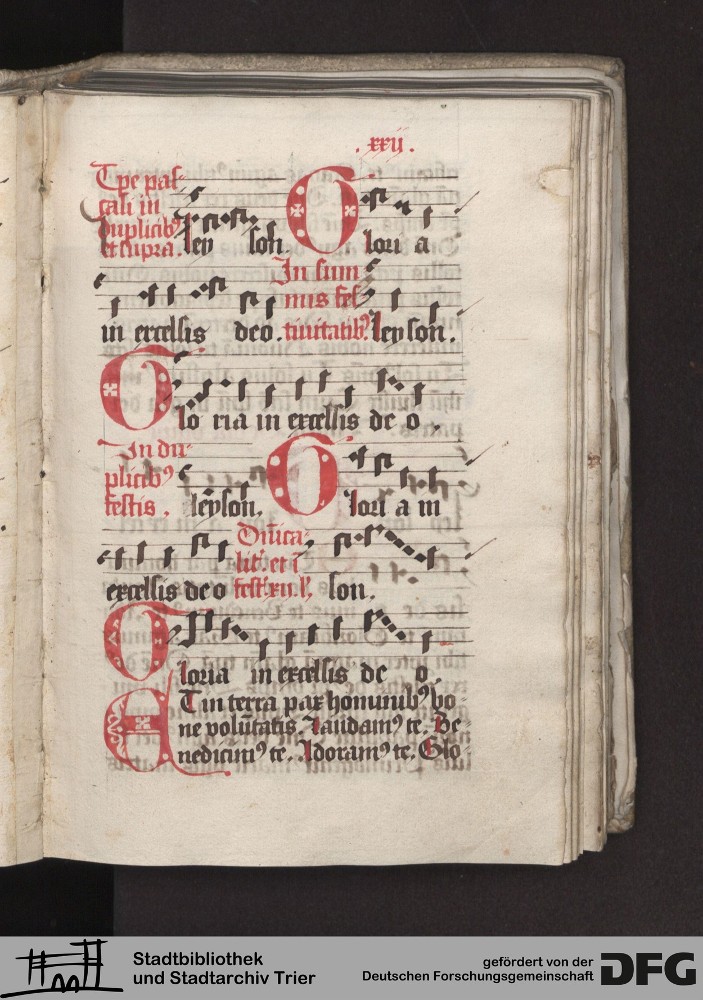 .xxij.
Tpe pas-
cali in
duplicibꝰ
et supra. leyson. Gloria
in excelsis deo. In sum
mis fes
tiuitatibꝰ. leyson.
Gloria in excelsis deo.
In du-
plicibꝰ
festis. leyson. Gloria in
excelsis deo Dn̄ica
lib. et ī
fest. xii. l. son.
Gloria in excelsis deo.
Et in terra pax hominibꝰ bo
ne volūtatis. Laudamꝰ te. Be
nedicimꝰ te. Adoramꝰ te. Glo
Stadtbibliothek
und Stadtarchiv Trier
gefördert von der
Deutschen Forschungsgemeinschaft
DFG